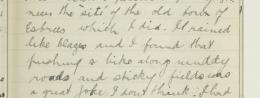 near the site of the old town of
Esbress which I did. It rained
like blazes and I found that
pushing s like along muddy
roads and sticky fields was
a great joke I dont think. I had